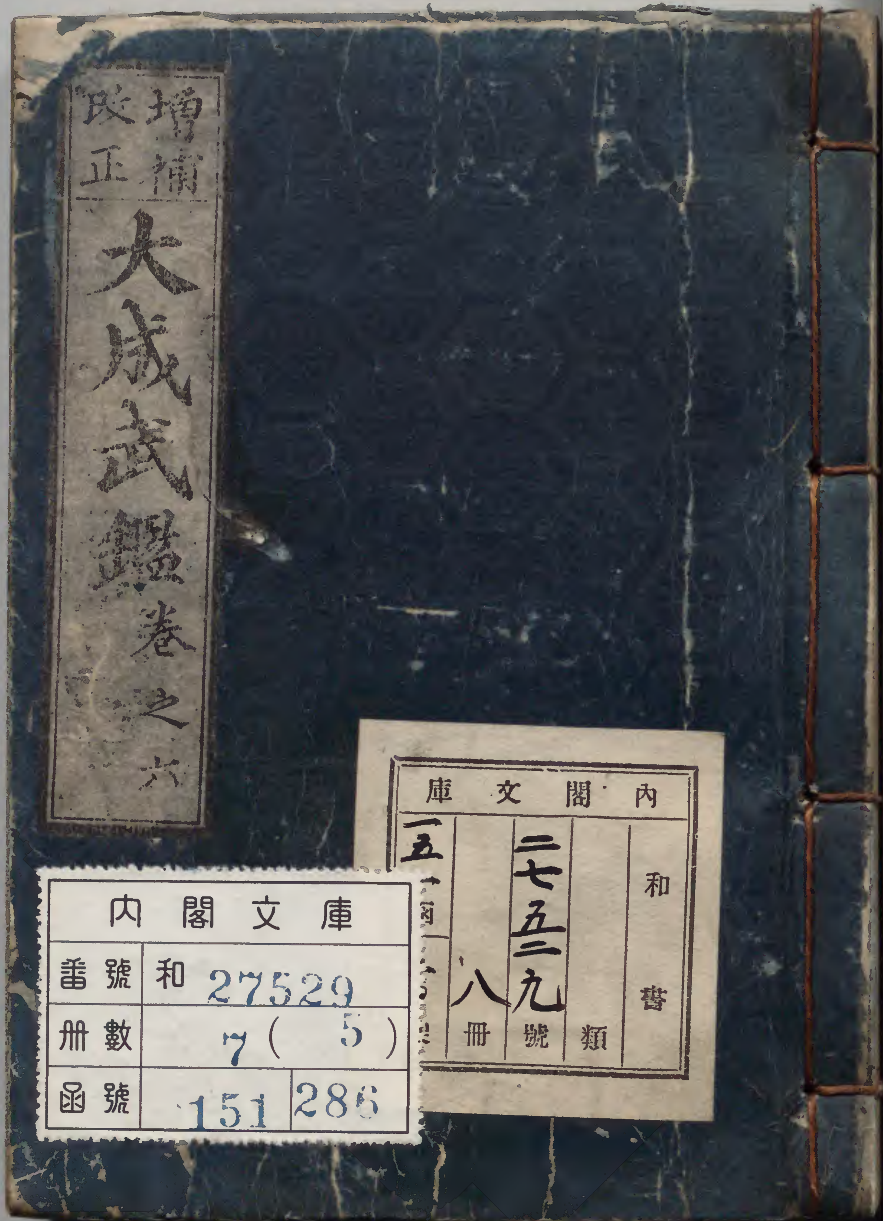 増補
改正
大成武鑑
巻之六
內閣文庫
和書
類
二七五二九號
八冊
一五一
內閣文庫
番號 和 27529
冊數 7 ( 5 )
函號 151 286